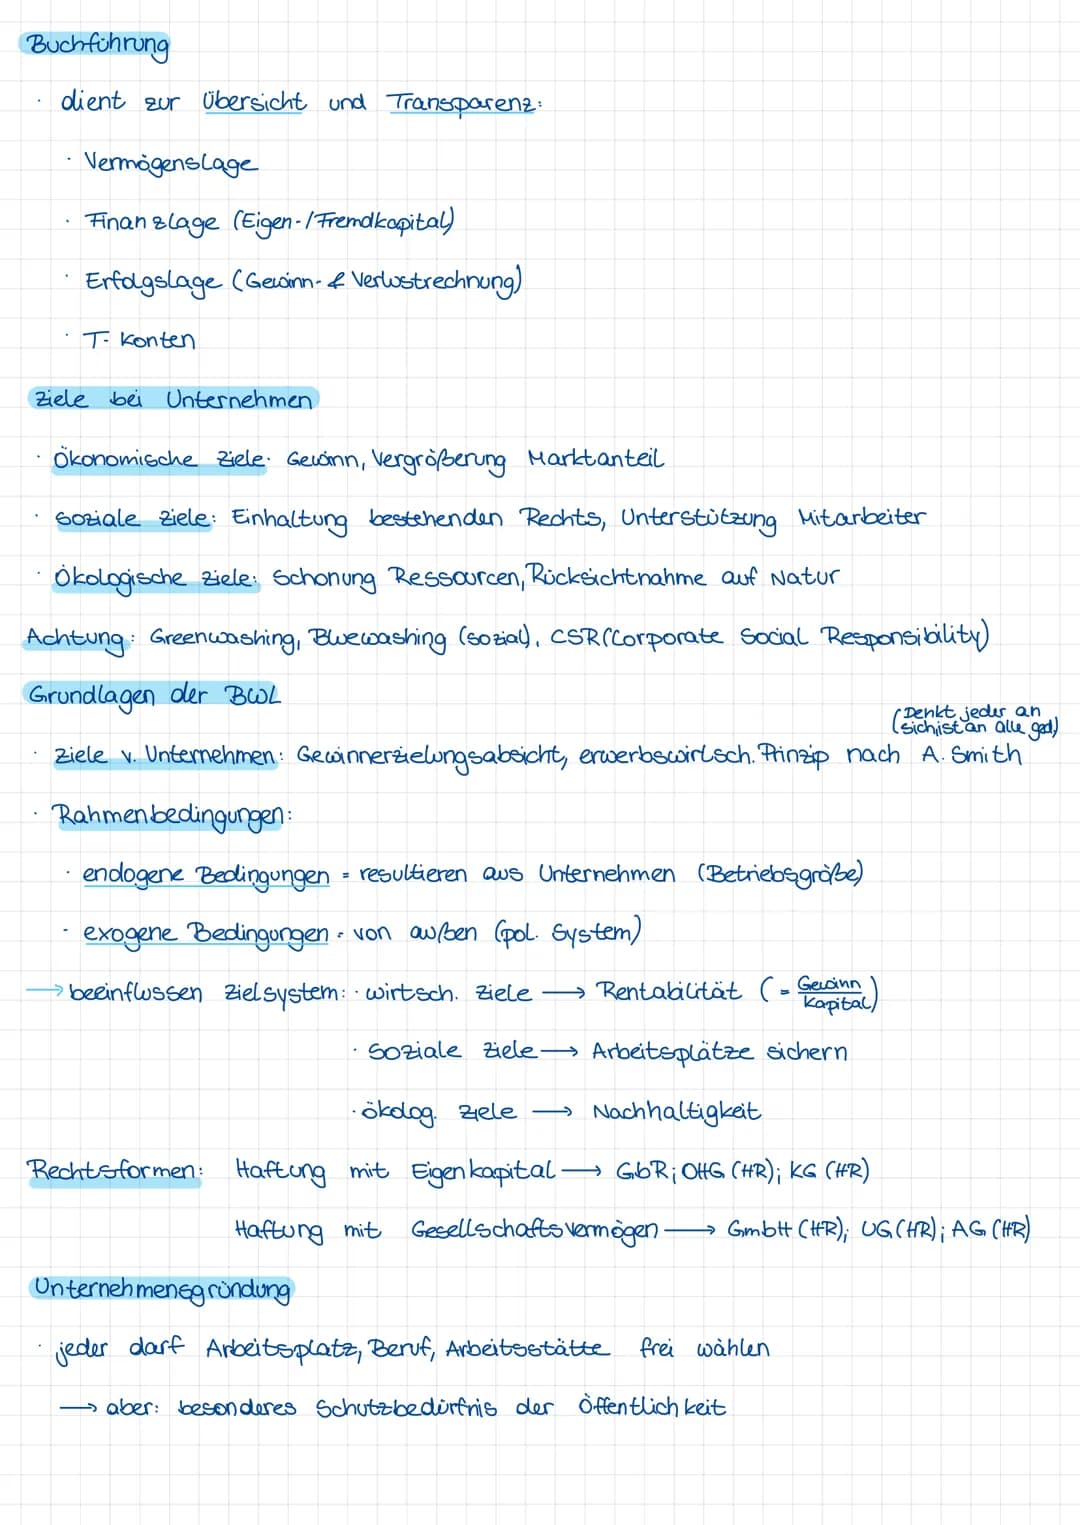 Buchführung
· dient zur Übersicht und Transparenz:
· Vermögenslage
· Finanzlage (Eigen-/Fremdkapital)
· Erfolgslage (Gewinn- & Verlustrechnung)
· T-Konten
Ziele bei Unternehmen
· Ökonomische Ziele: Gewinn, Vergrößerung Marktanteil
· Soziale Ziele: Einhaltung bestehenden Rechts, Unterstützung Mitarbeiter
· Ökologische Ziele: Schonung Ressourcen, Rücksichtnahme auf Natur
Achtung: Greenwashing, Bluewashing (sozial), CSR (Corporate Social Responsibility)
Grundlagen der BWL
(Denkt jeder an
sich, ist an alle ged.)
· Ziele v. Unternehmen: Gewinnerzielungsabsicht, erwerbswirtsch. Prinzip nach A. Smith
· Rahmenbedingungen:
· endogene Bedingungen = resultieren aus Unternehmen (Betriebsgröße)
· exogene Bedingungen = von außen (pol. System)
→ beeinflussen Zielsystem: · wirtsch. Ziele → Rentabilität (= Gewinn/Kapital)
· Soziale Ziele → Arbeitsplätze sichern
· ökolog. Ziele → Nachhaltigkeit
Rechtsformen: Haftung mit Eigenkapital → GbR; OHG (HR); KG (HR)
Haftung mit Gesellschaftsvermögen → GmbH (HR); UG (HR); AG (HR)
Unternehmensgründung
· jeder darf Arbeitsplatz, Beruf, Arbeitsstätte frei wählen
→ aber: besonderes Schutzbedürfnis der Öffentlichkeit